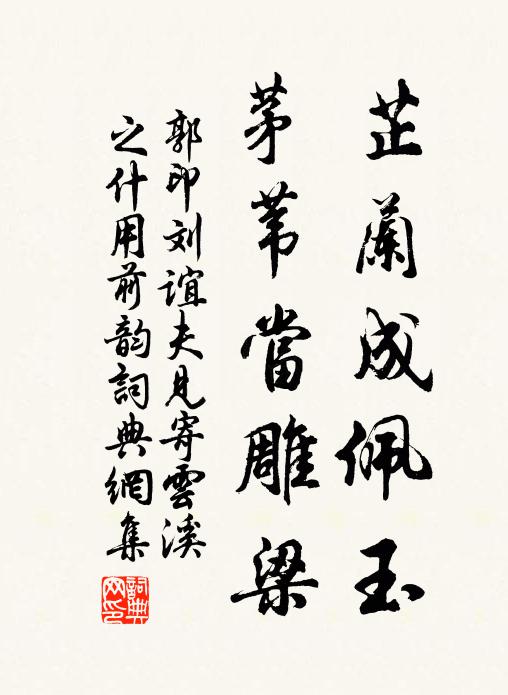 芷蘭成佩玉
茅苇當雕梁
郭印刘誼夫見寄雲溪
之什用前韵詞典網集
詞典网印